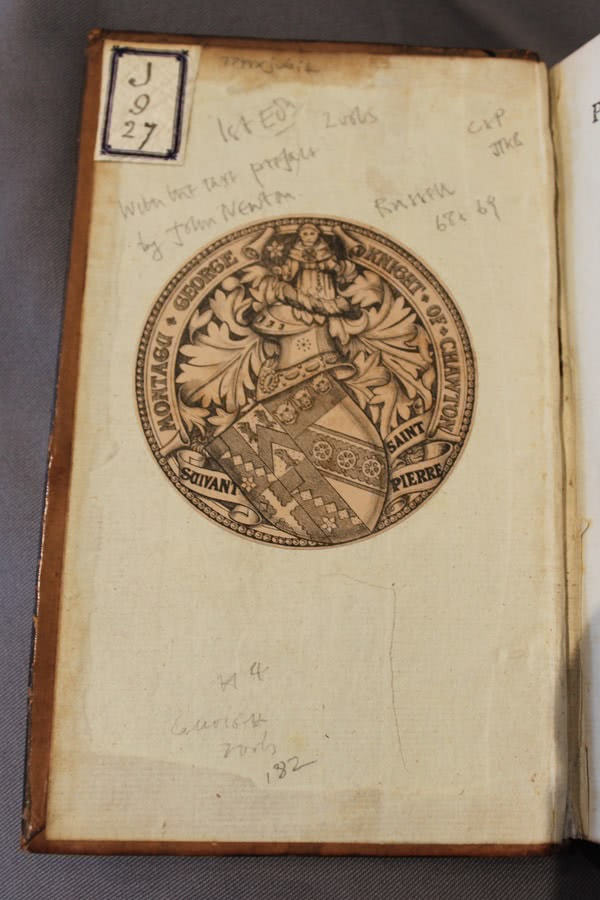 J
9
27
1st Edn 2 vols
C & P
JTKB
Without rare preface
by John Newton
Russell
68 & 69
MONTAGU • GEORGE KNIGHT • OF • CHAWTON
SUIVANT SAINT PIERRE
2 vols
182